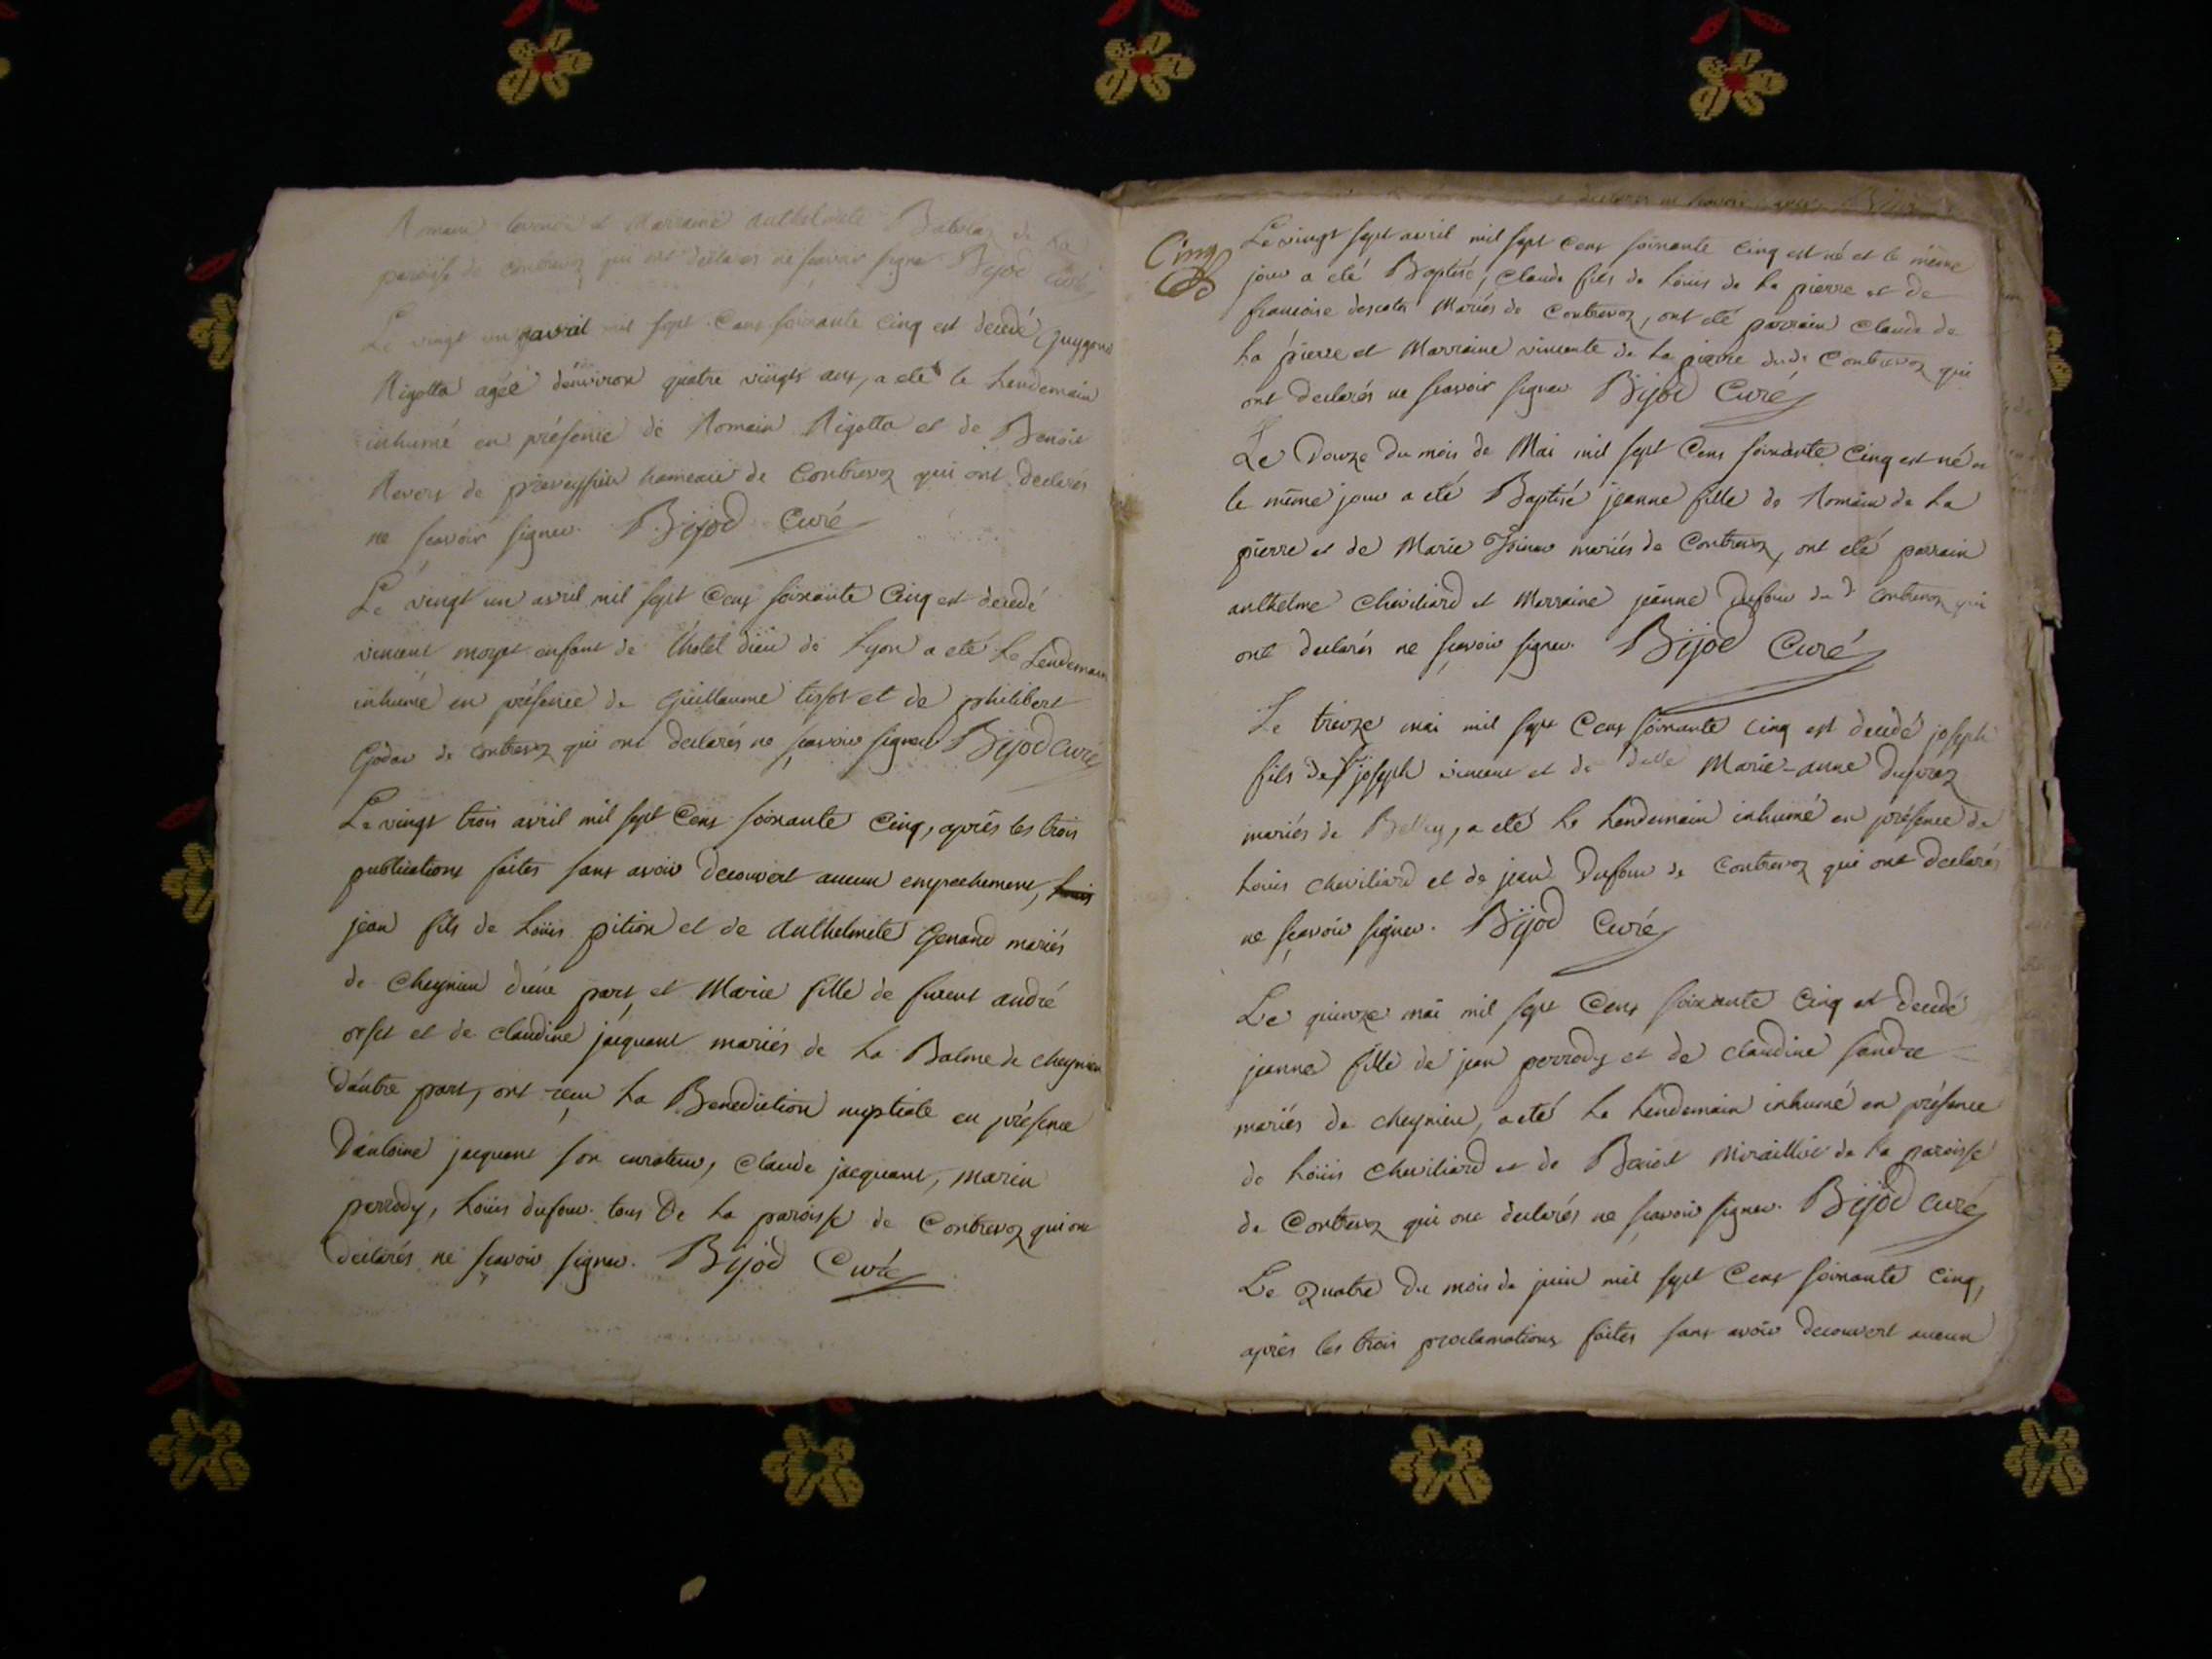 Romain et Marraine Anthelmete de La
paroisse de Contrevoz qui ont declarés ne scavoir signer Bijod Curé
Le vingt un avril mil sept Cens soixante Cinq est decedé
Rigotta agée d'environ quatre vingts ans, a eté le Lendemain
inhumé en présence de Romain Rigotta et de Benoit
Revers de preveyssieu hameau de Contrevoz qui ont declarés
ne scavoir signer. Bijod Curé
Le vingt un avril mil sept Cens soixante Cinq est decedé
vincent moyet enfant de l'hotel dieu de Lyon a eté le Lendemain
inhumé en présence de Guillaume tissot et de philibert
Godov de Contrevoz qui ont declarés ne scavoir signer Bijod Curé
Le vingt trois avril mil sept Cens soixante Cinq, après les trois
publications faites sans avoir decouvert aucun empechement,
jean fils de Loüis pition et de Anthelmete Genand mariés
de Cheynieu d'une part et Marie fille de furent andré
orset et de Claudine jacquant mariés de La Balme de cheynieu
d'autre part, ont reçu La Benediction nuptiale en présence
D'antoine jacquant son curateur, Claude jacquant, Marin
perrody, Loüis dufour tous De La paroisse de Contrevoz qui ont
declarés ne scavoir signer. Bijod Curé
Cinq
Le vingt sept avril mil sept Cens soixante Cinq est né et le même
jour a eté Baptisé, Claude fils de Loüis de La pierre et de
françoise descotes Mariés de Contrevoz, ont eté parrain Claude de
La pierre et Marraine vincente de La pierre dudt Contrevoz qui
ont declarés ne scavoir signer Bijod Curé
Le Douze du mois de Mai mil sept Cens soixante Cinq est né et
le même jour a eté Baptisé jeanne fille de Romain de La
pierre et de Marie mariés de Contrevoz, ont eté parrain
anthelme Cheviliard et Marraine jeanne Dufour dudt Contrevoz qui
ont declarés ne scavoir signer. Bijod Curé
Le treize mai mil sept Cens soixante Cinq est decedé joseph
fils de Sr joseph vincent et de delle Marie-anne duprez
mariés de Belley, a eté Le Lendemain inhumé en présence de
Loüis cheviliard et de jean Dufour de Contrevoz qui ont declarés
ne scavoir signer. Bijod Curé
Le quinze mai mil sept Cens soixante Cinq est decedé
jeanne fille de jean perrody et de Claudine sandre
mariés de cheynieu, a eté Le Lendemain inhumé en présence
de Loüis Cheviliard et de Benoit Miraillier de La paroisse
de Contrevoz qui ont declarés ne scavoir signer. Bijod Curé
Le Quatre du mois de juin mil sept Cens soixante Cinq,
après les trois proclamations faites sans avoir decouvert aucun